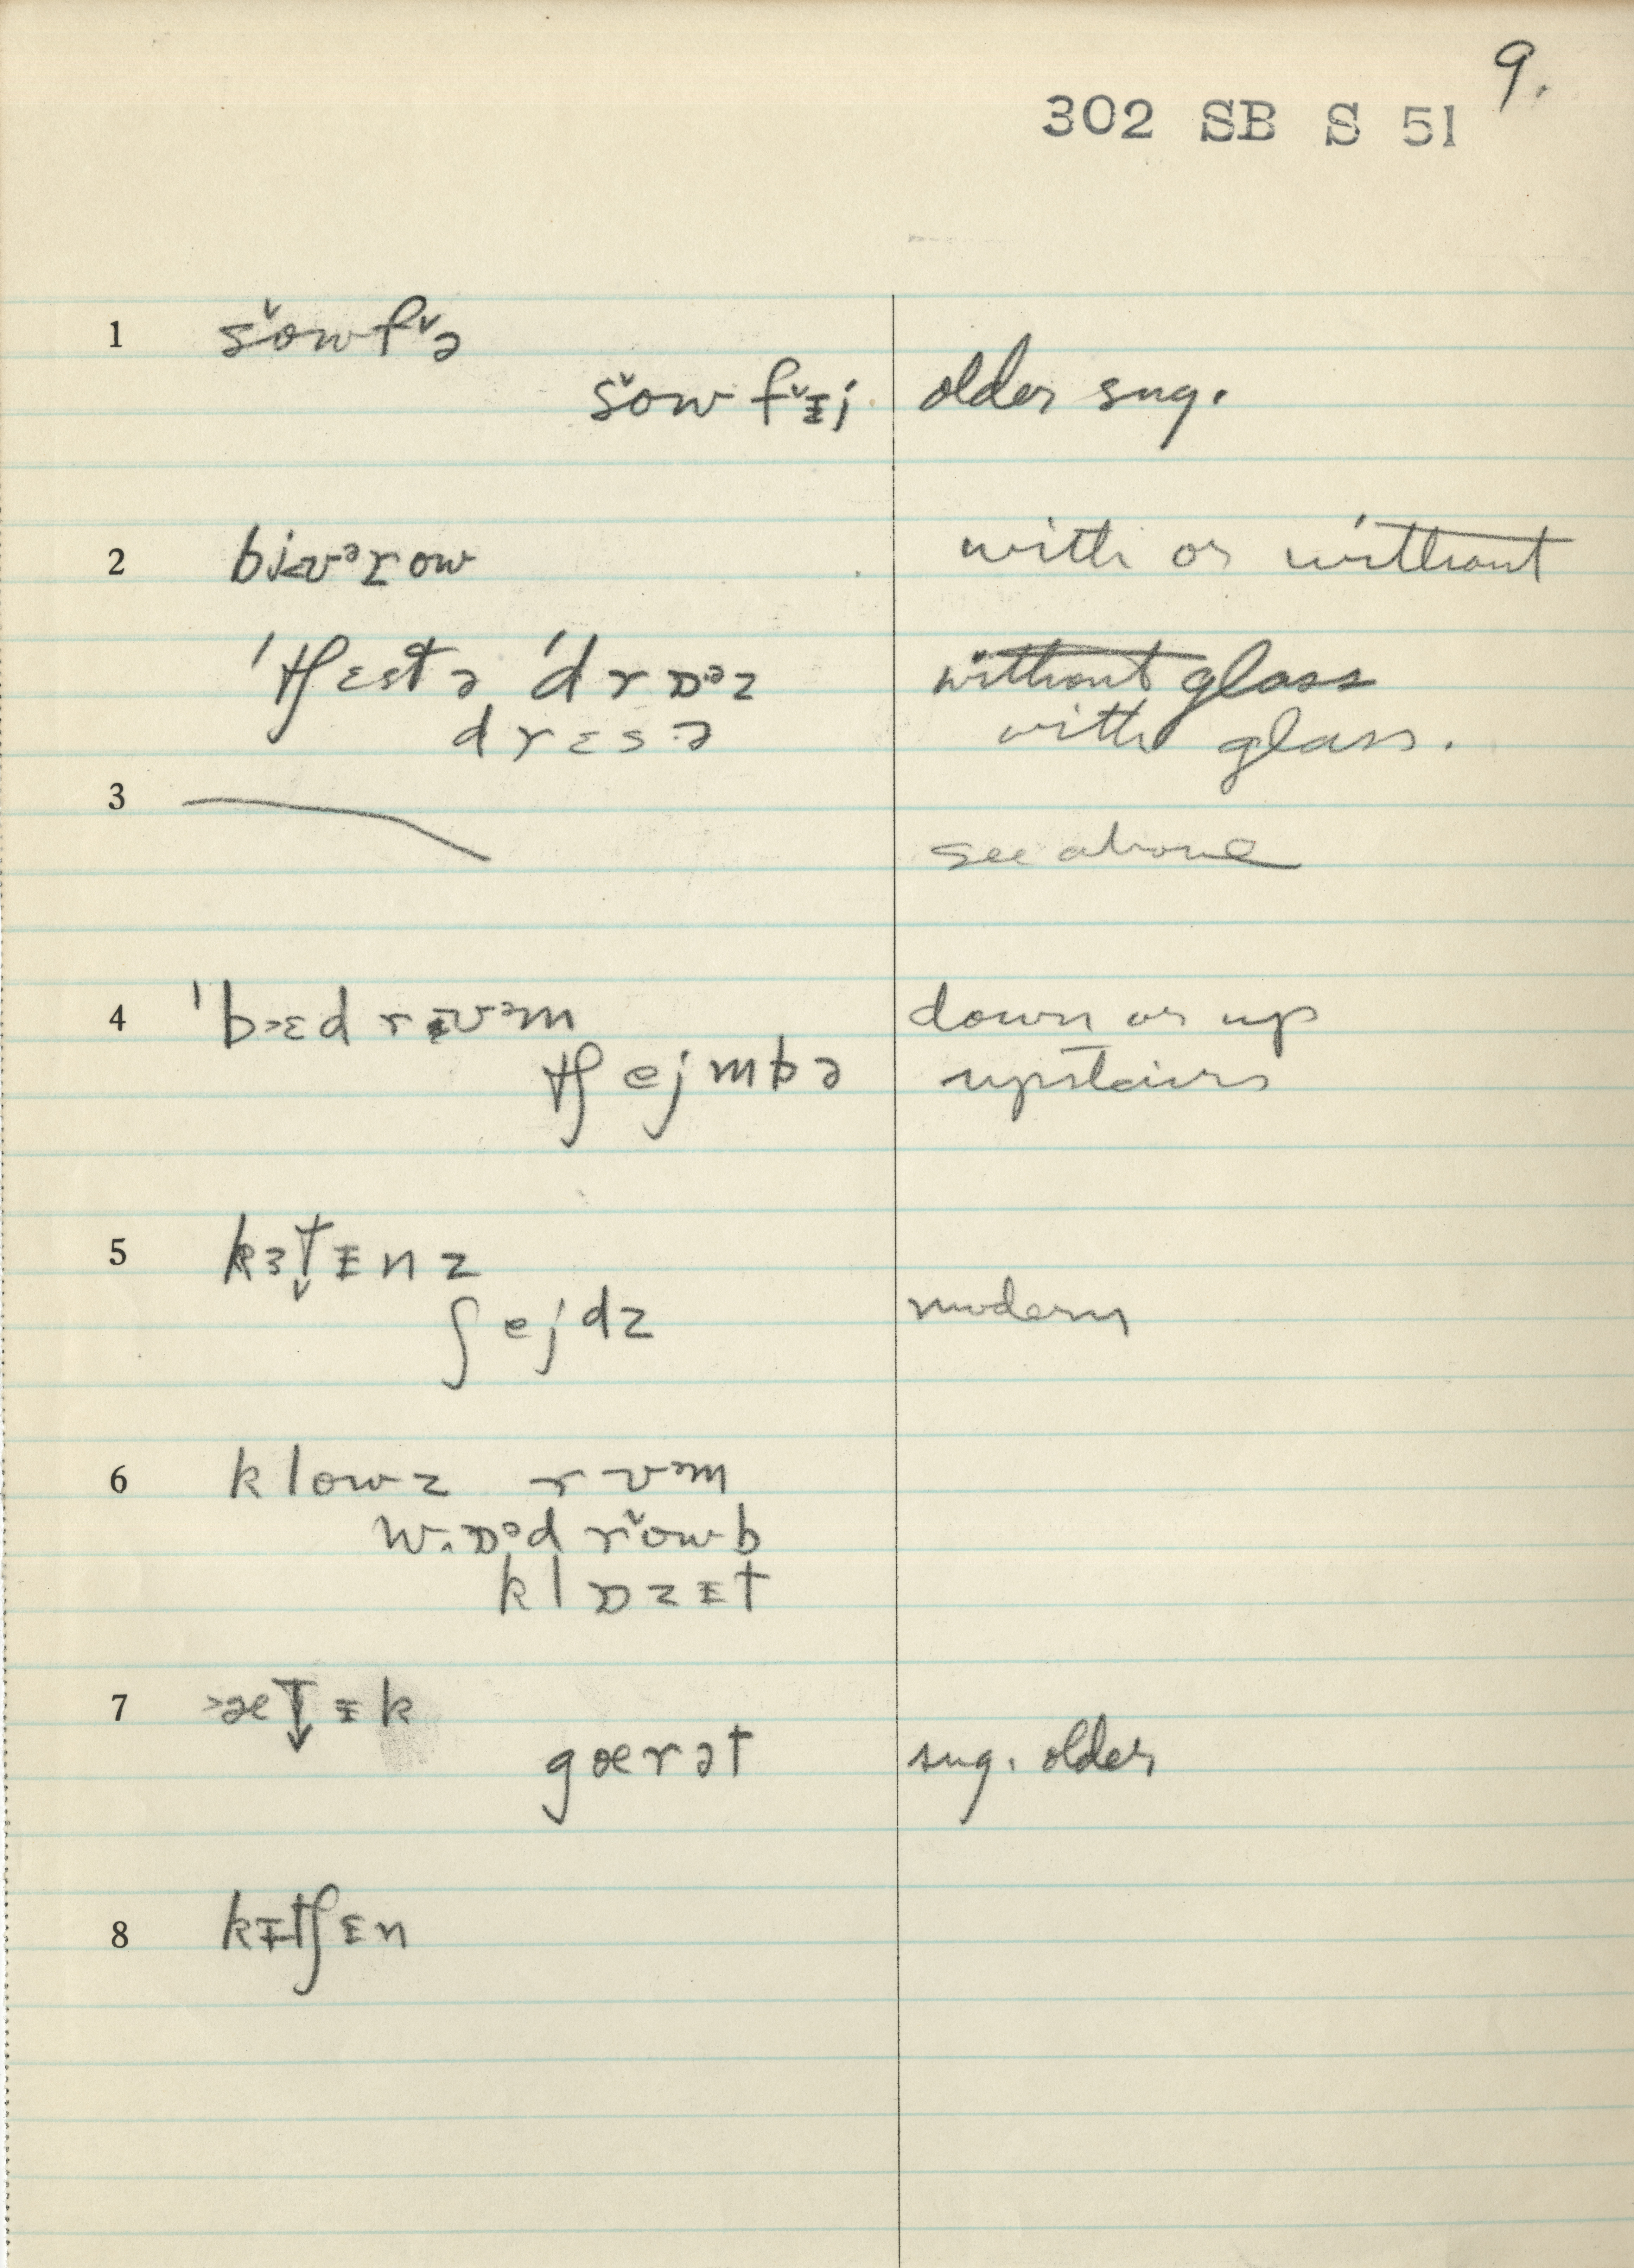 9.
302 SB S 51
1 šowfˇə
šow fˇᵻj older sug.
2 bi<vᵊɾow with or without
ˈtʃɛstə ˈdrɒᵊz without glass
drɛsə with glass.
3 see above
4 ˈb>ɛdrᵻvᵊm down or up
tʃejmbə upstairs
5 kɜt̬ᵻnz
ʃejdz modern
6 klowz rvᵊm
drˇowb
klɒzᵻt
7 >æt̬ᵻk
gærət sug. older
8 kᵻtʃᵻn